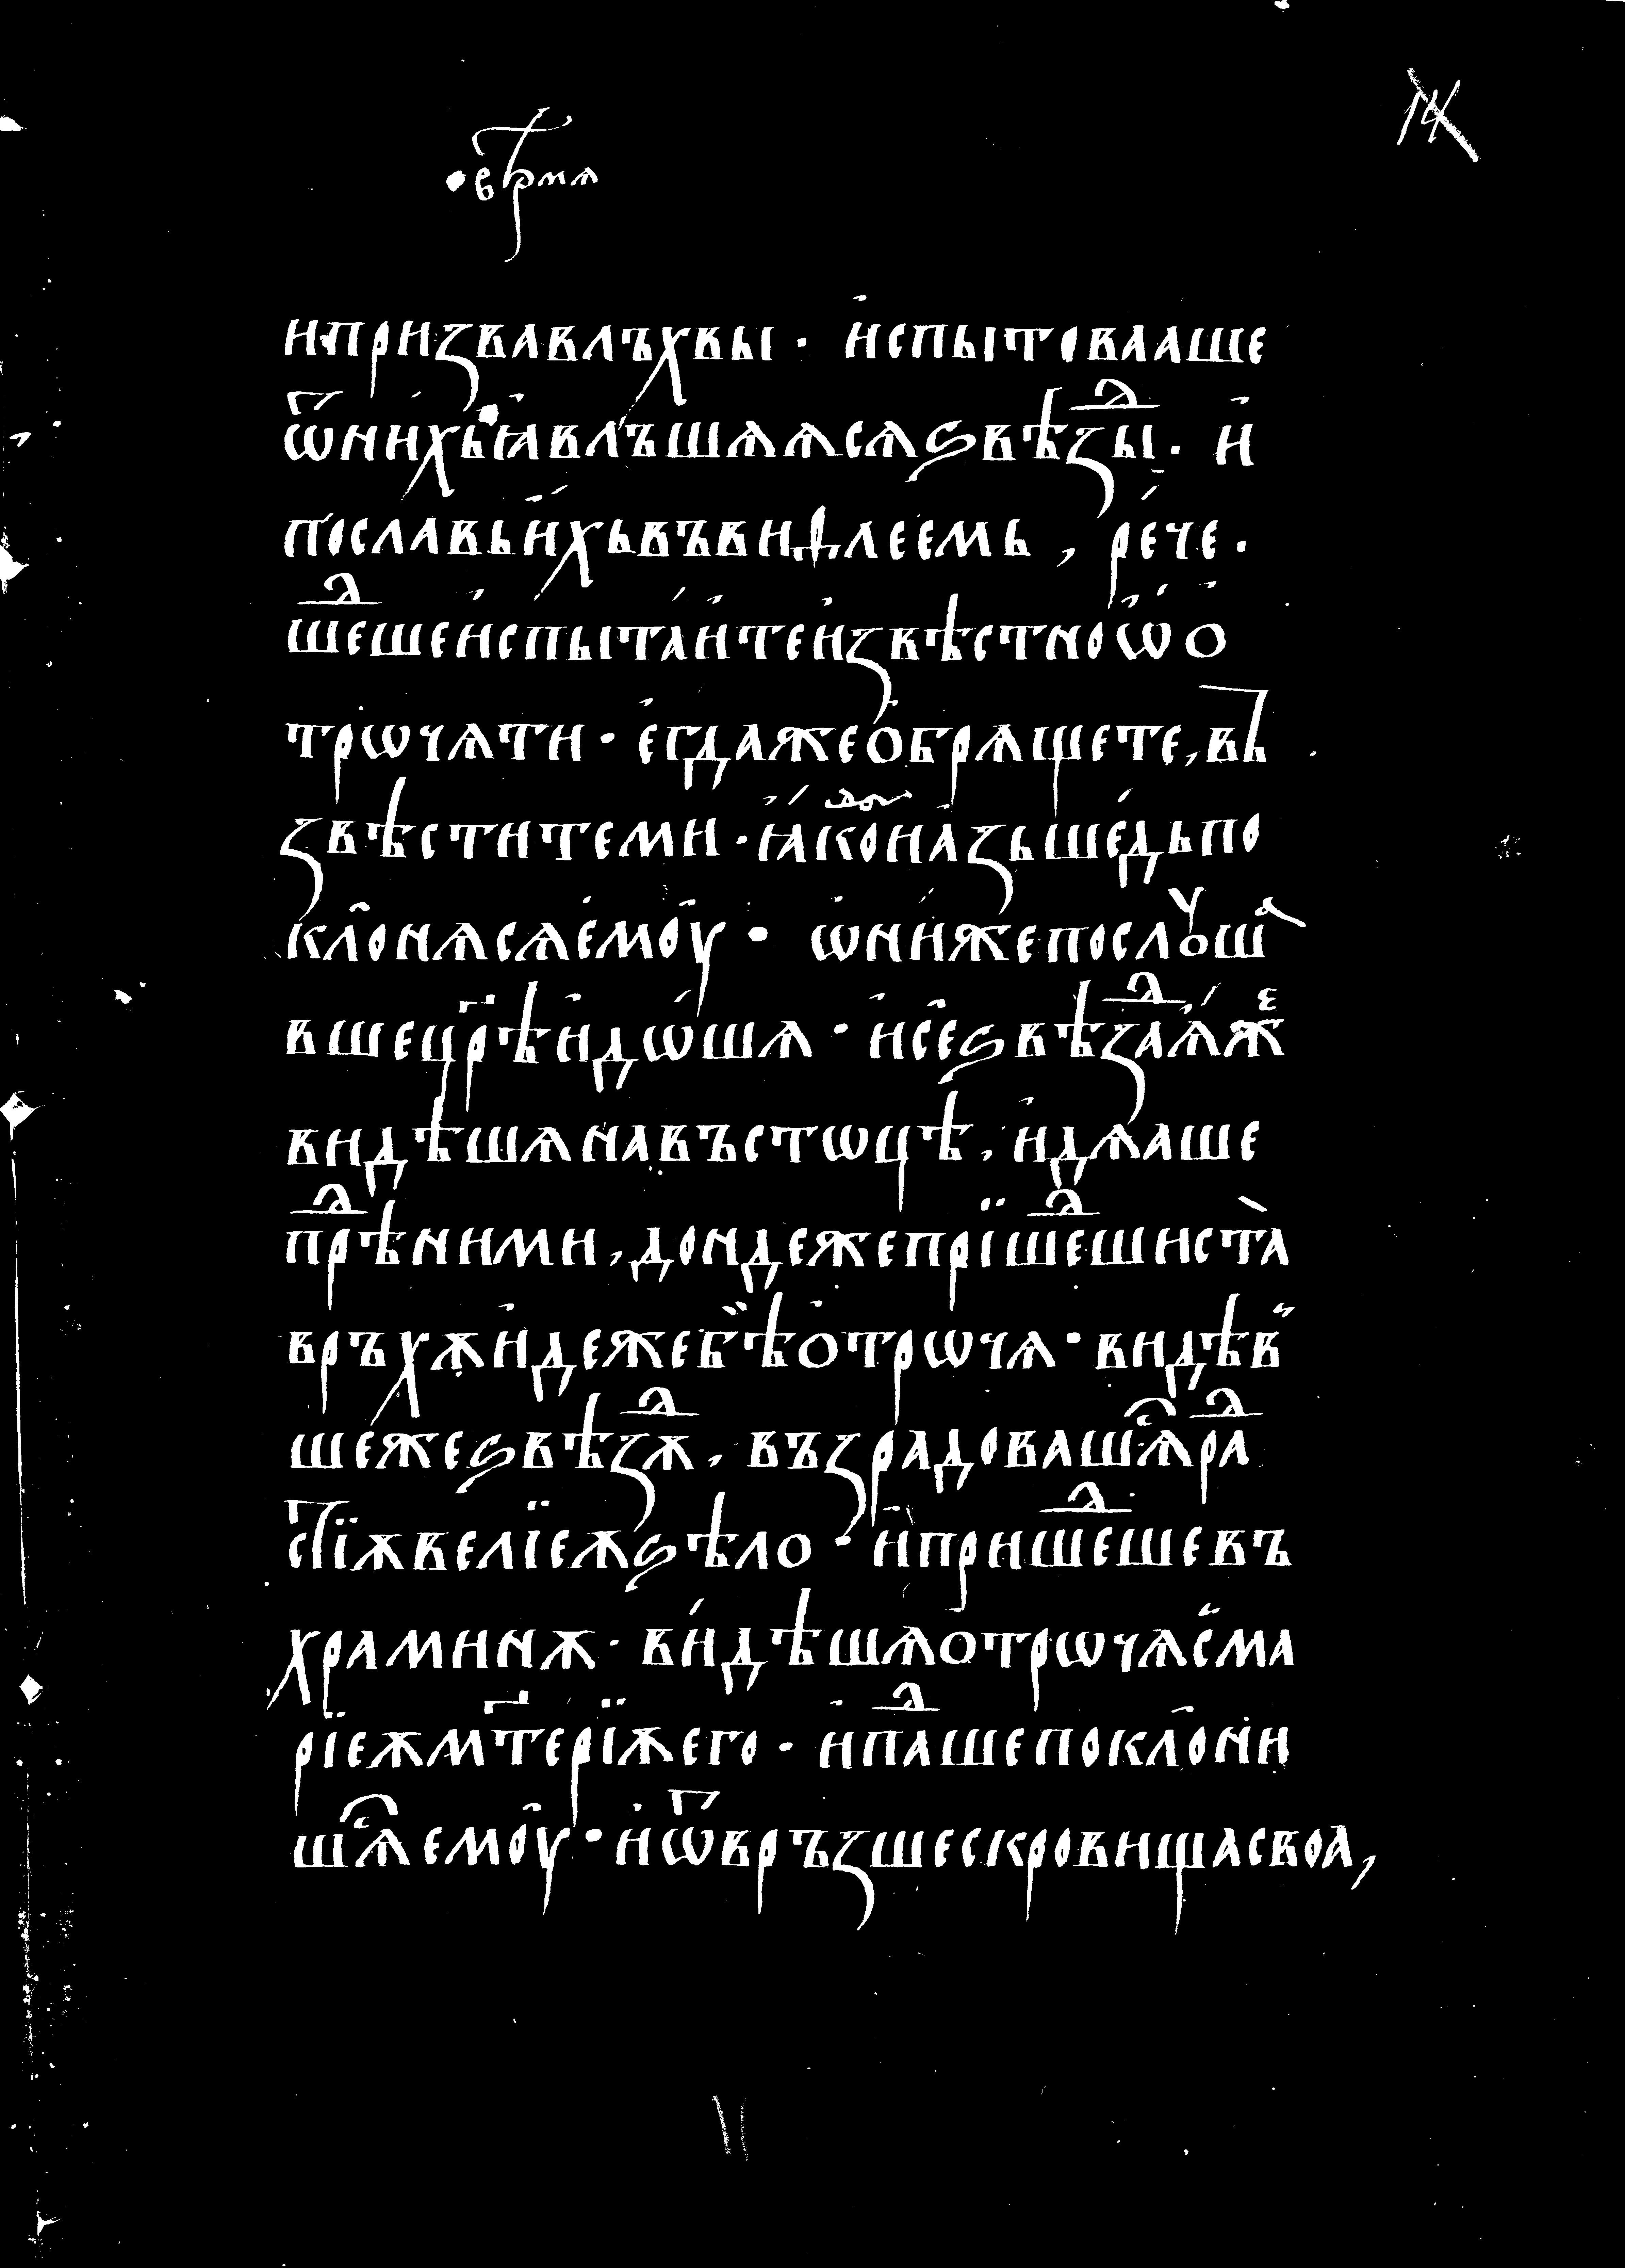 14
и призвавлъхвы · и҆спытоваашe
ѿнихьꙗ҆влъшѧѧсѧѕвѣзⷣы · и҆
пославьи҆хьвъвиѳлеемь , рече ·
шеⷣшеи҆спытаи҆теи҆звѣстноѡ҆о҆
трѡчѧти · е҆гдажеѡбрѧщете, въ
звѣститеми · ꙗ҆коназьшедьпо
клонѧсѧе҆моу · ѡ҆нижепослꙋшаⷶ
вшецр҃ѣи҆дѡшѧ · и҆се҆ѕвѣзⷣаѧжⷷ
видѣшѧнавъстѡцѣ , и҆дѧаше
прⷣѣними , дондежепрїшеⷣшиста̀
връхѫи҆дежебѣо҆трѡчѧ · видѣв
шежеѕвѣзⷣѫ , възрадовашѧⷭраⷣ
стїѫвелїеѫѕѣло · и҆пришеⷣшевъ
храминѫ · видѣшѧотрѡчѧсма
рїеѫмт҃ерїѫего · и҆паⷣшепоклони
шѧⷭемоу · и҆ѿвръзшескровищасвоа ,